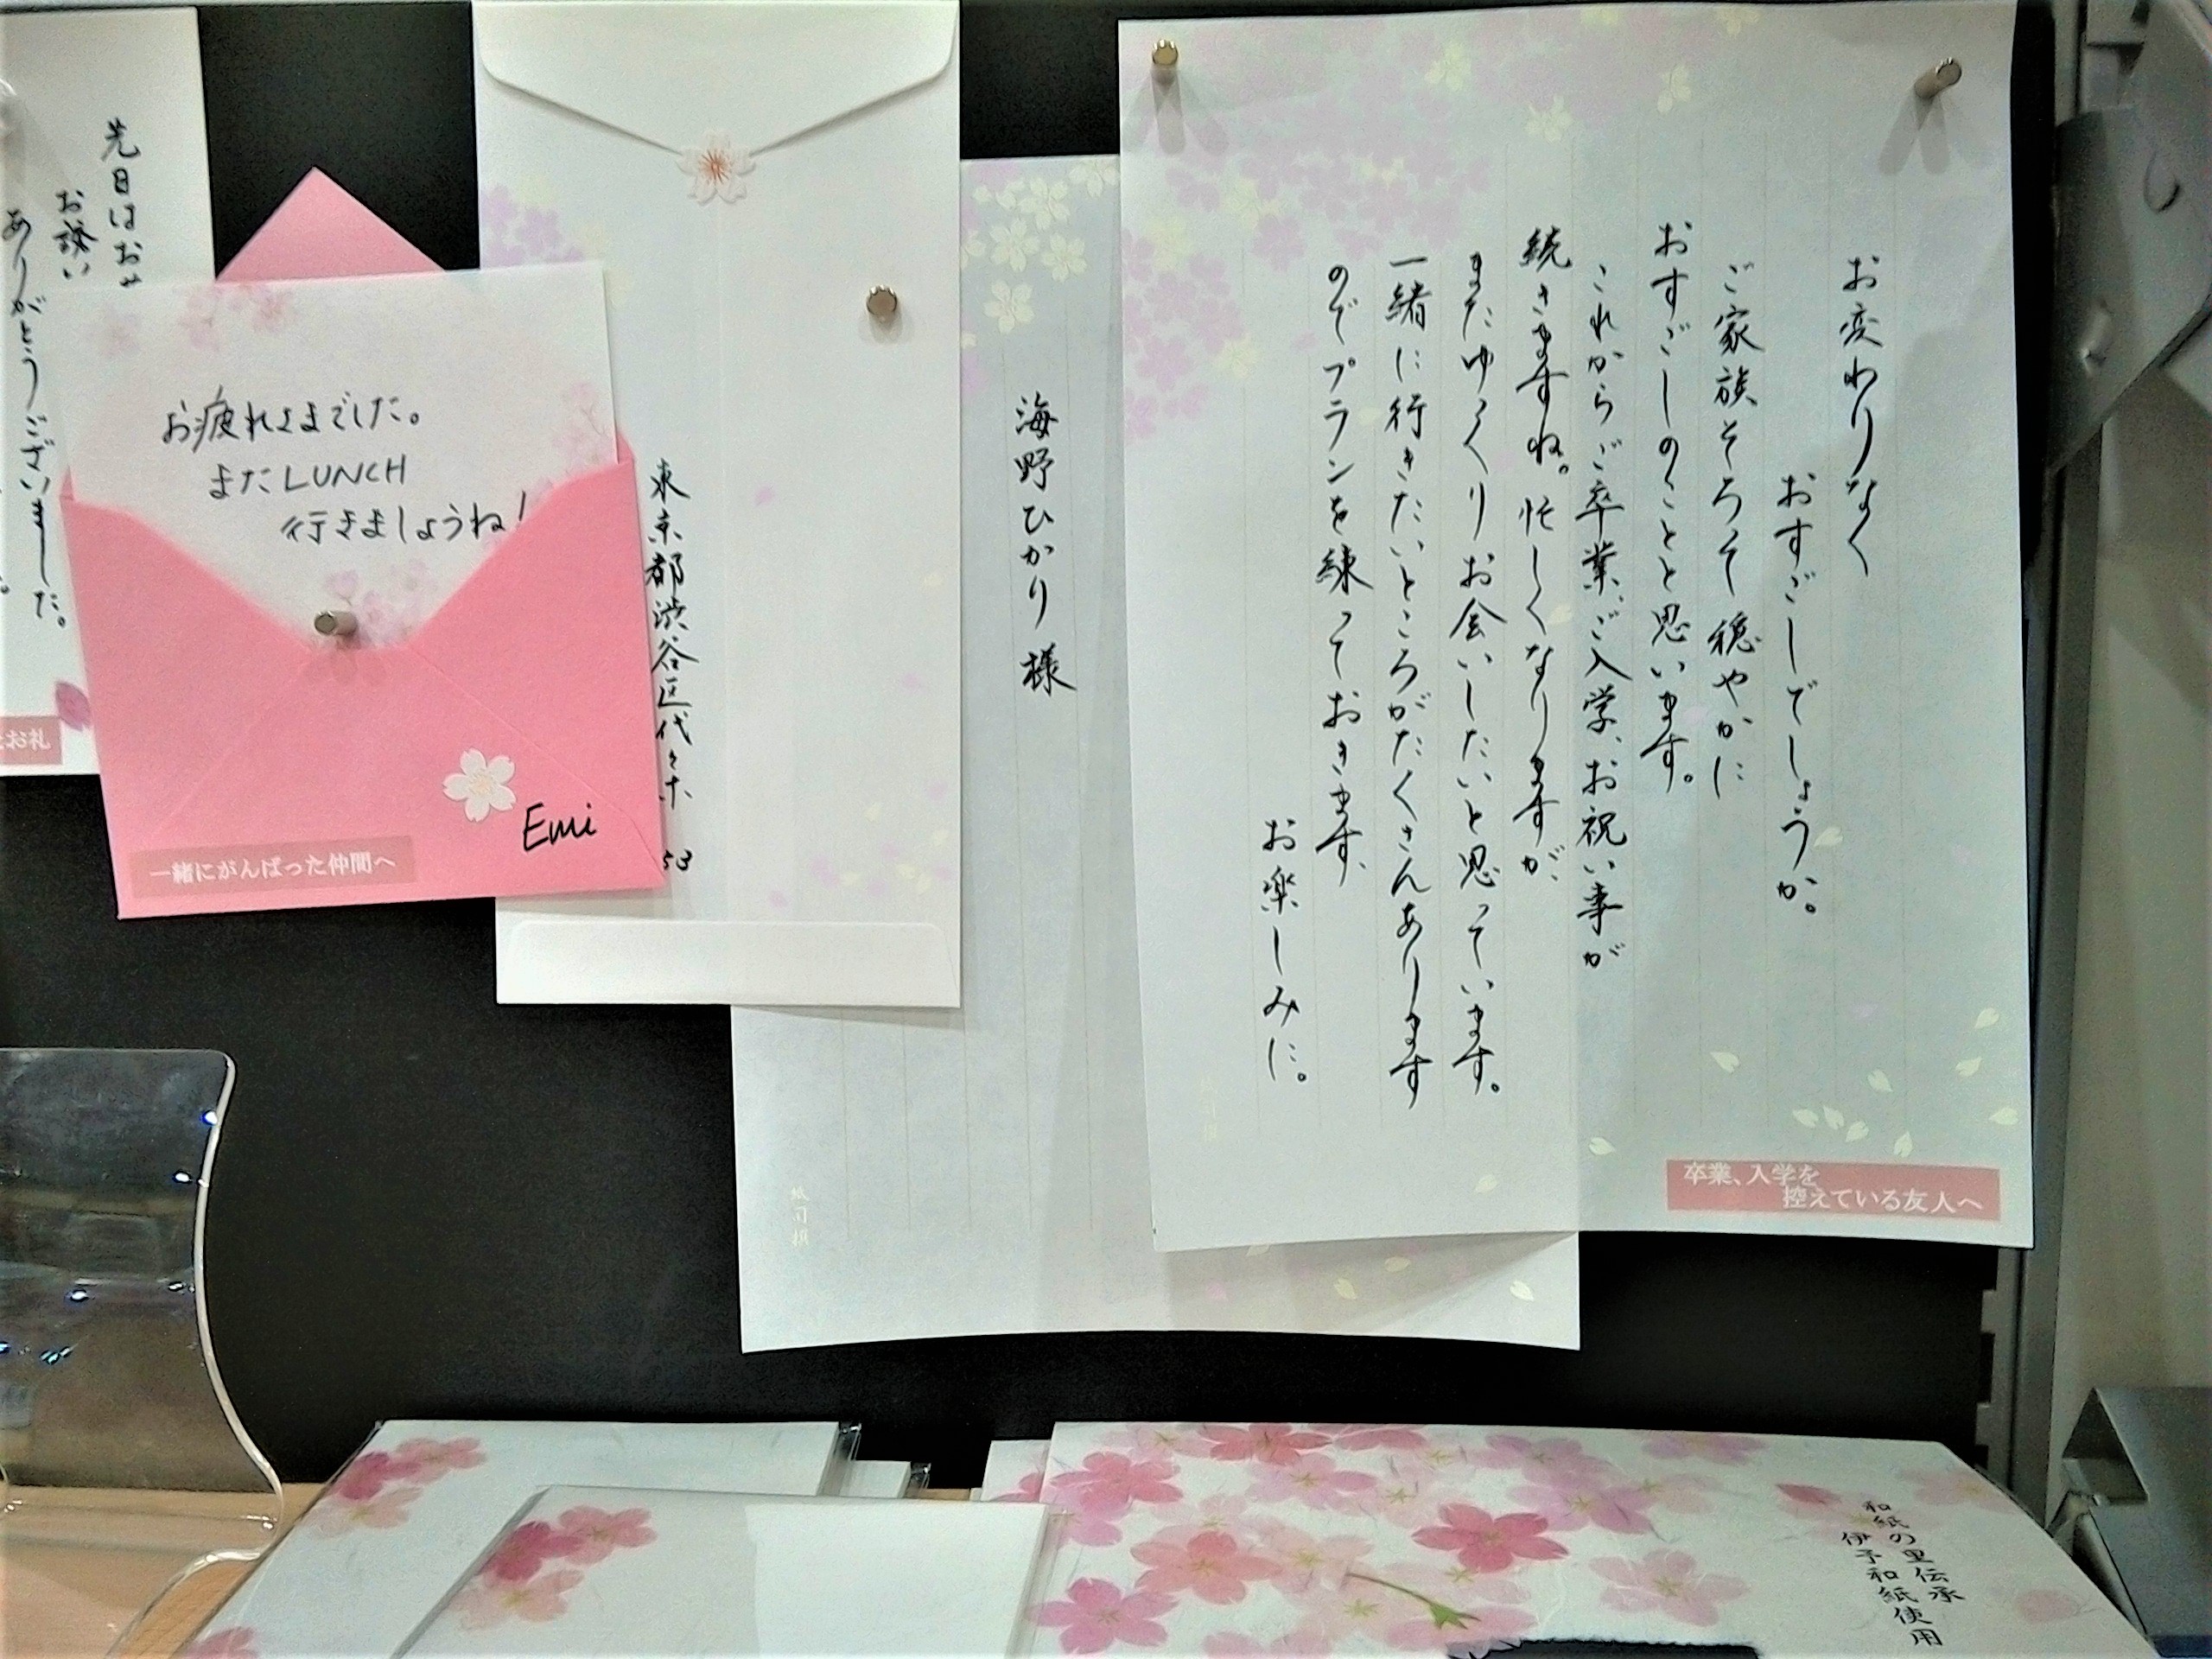 お変わりなく
おすごしでしょうか。
ご家族そろって穏やかに
おすごしのことと思います。
これからご卒業、ご入学、お祝い事が
続きますね。忙しくなりますが、
またゆっくりお会いしたいと思っています。
一緒に行きたいところがたくさんあります
のでプランを練っておきます。
お楽しみに。
卒業、入学を
控えている友人へ
海野ひかり様
紙司撰
東京都渋谷区代々木
53
お疲れさまでした。
またLUNCH
行きましょうね!
Emi
一緒にがんばった仲間へ
先日はお
お誘い
ありがとうございました。
お礼
和紙の里伝承
伊予和紙使用